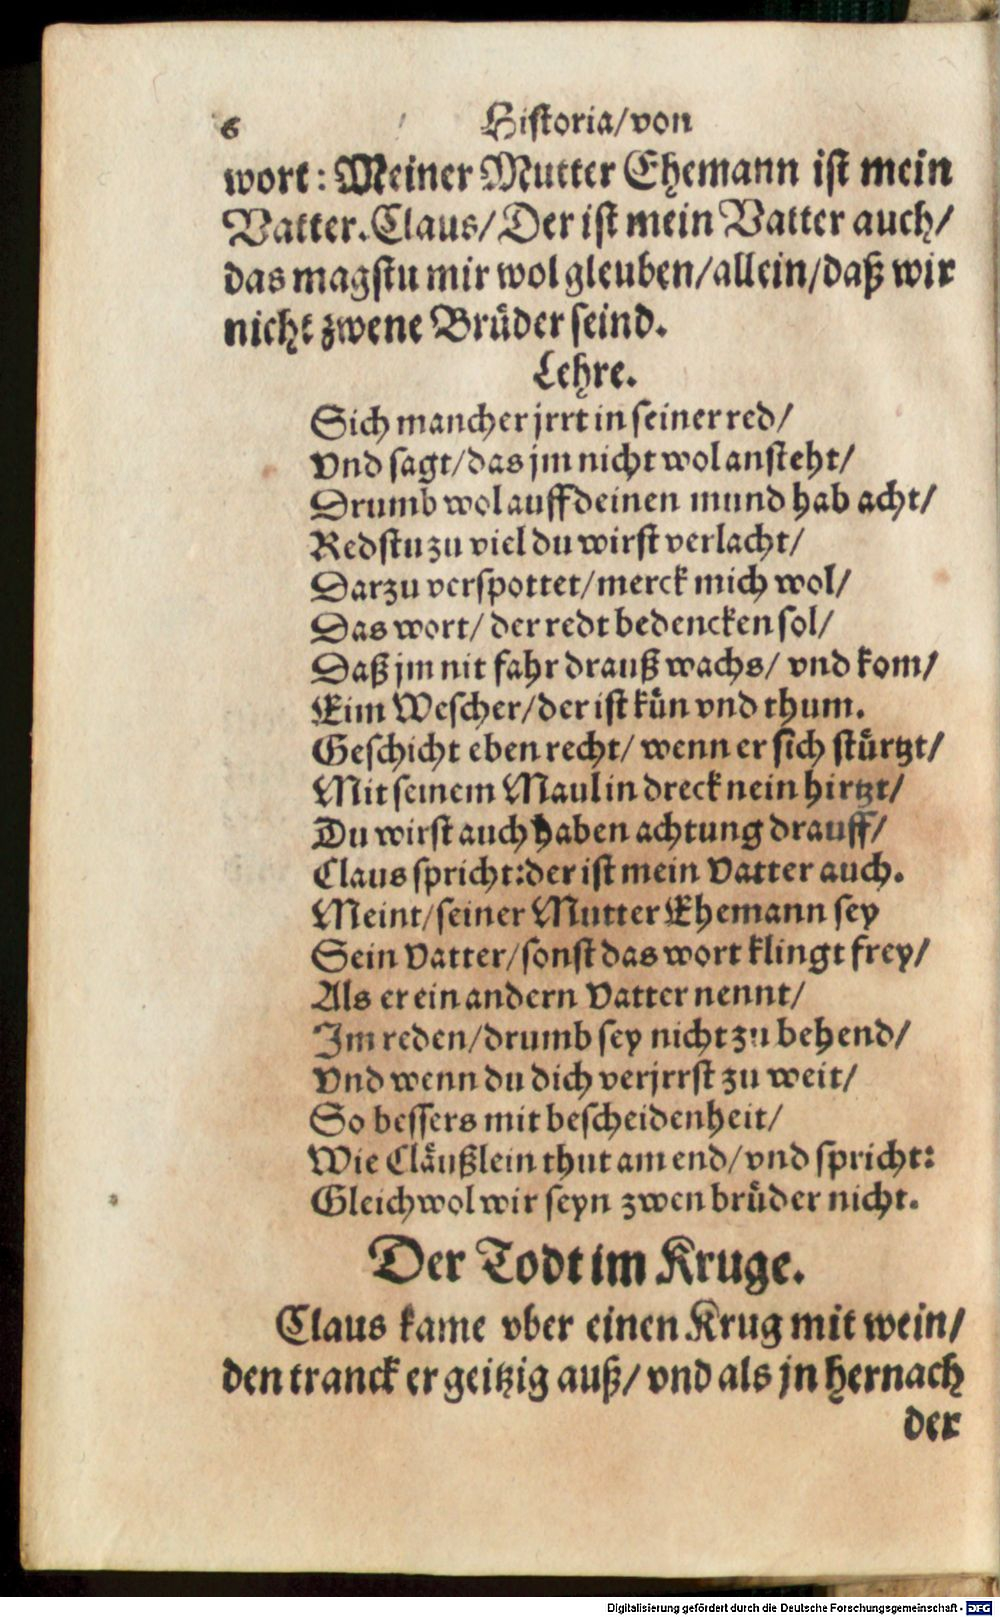 6 Historia/von
wort: Meiner Mutter Ehemann ist mein
Vatter. Claus/Der ist mein Vatter auch/
das magstu mir wol gleuben/allein/daß wir
nicht zwene Brüder seind.
Lehre.
Sich mancher jrrt in seiner red/
Vnd sagt/das jm nicht wol ansteht/
Drumb wol auff deinen mund hab acht/
Redstu zu viel du wirst verlacht/
Darzu verspottet/merck mich wol/
Das wort/ der redt bedencken sol/
Daß jm nit fahr drauß wachs/ vnd kom/
Eim Wescher/der ist kün vnd thum.
Geschicht eben recht/ wenn er sich stürtzt/
Mit seinem Maul in dreck nein hirtzt/
Du wirst auch haben achtung drauff/
Claus spricht:der ist mein Vatter auch.
Meint/seiner Mutter Ehemann sey
Sein Vatter/sonst das wort klingt frey/
Als er ein andern Vatter nennt/
Im reden/drumb sey nicht zu behend/
Vnd wenn du dich verjrrst zu weit/
So bessers mit bescheidenheit/
Wie Cläußlein thut am end/vnd spricht:
Gleichwol wir seyn zwen brüder nicht.
Der Todt im Kruge.
Claus kame vber einen Krug mit wein/
den tranck er geitzig auß/ vnd als jn hernach
der
Digitalisierung gefördert durch die Deutsche Forschungsgemeinschaft - DFG